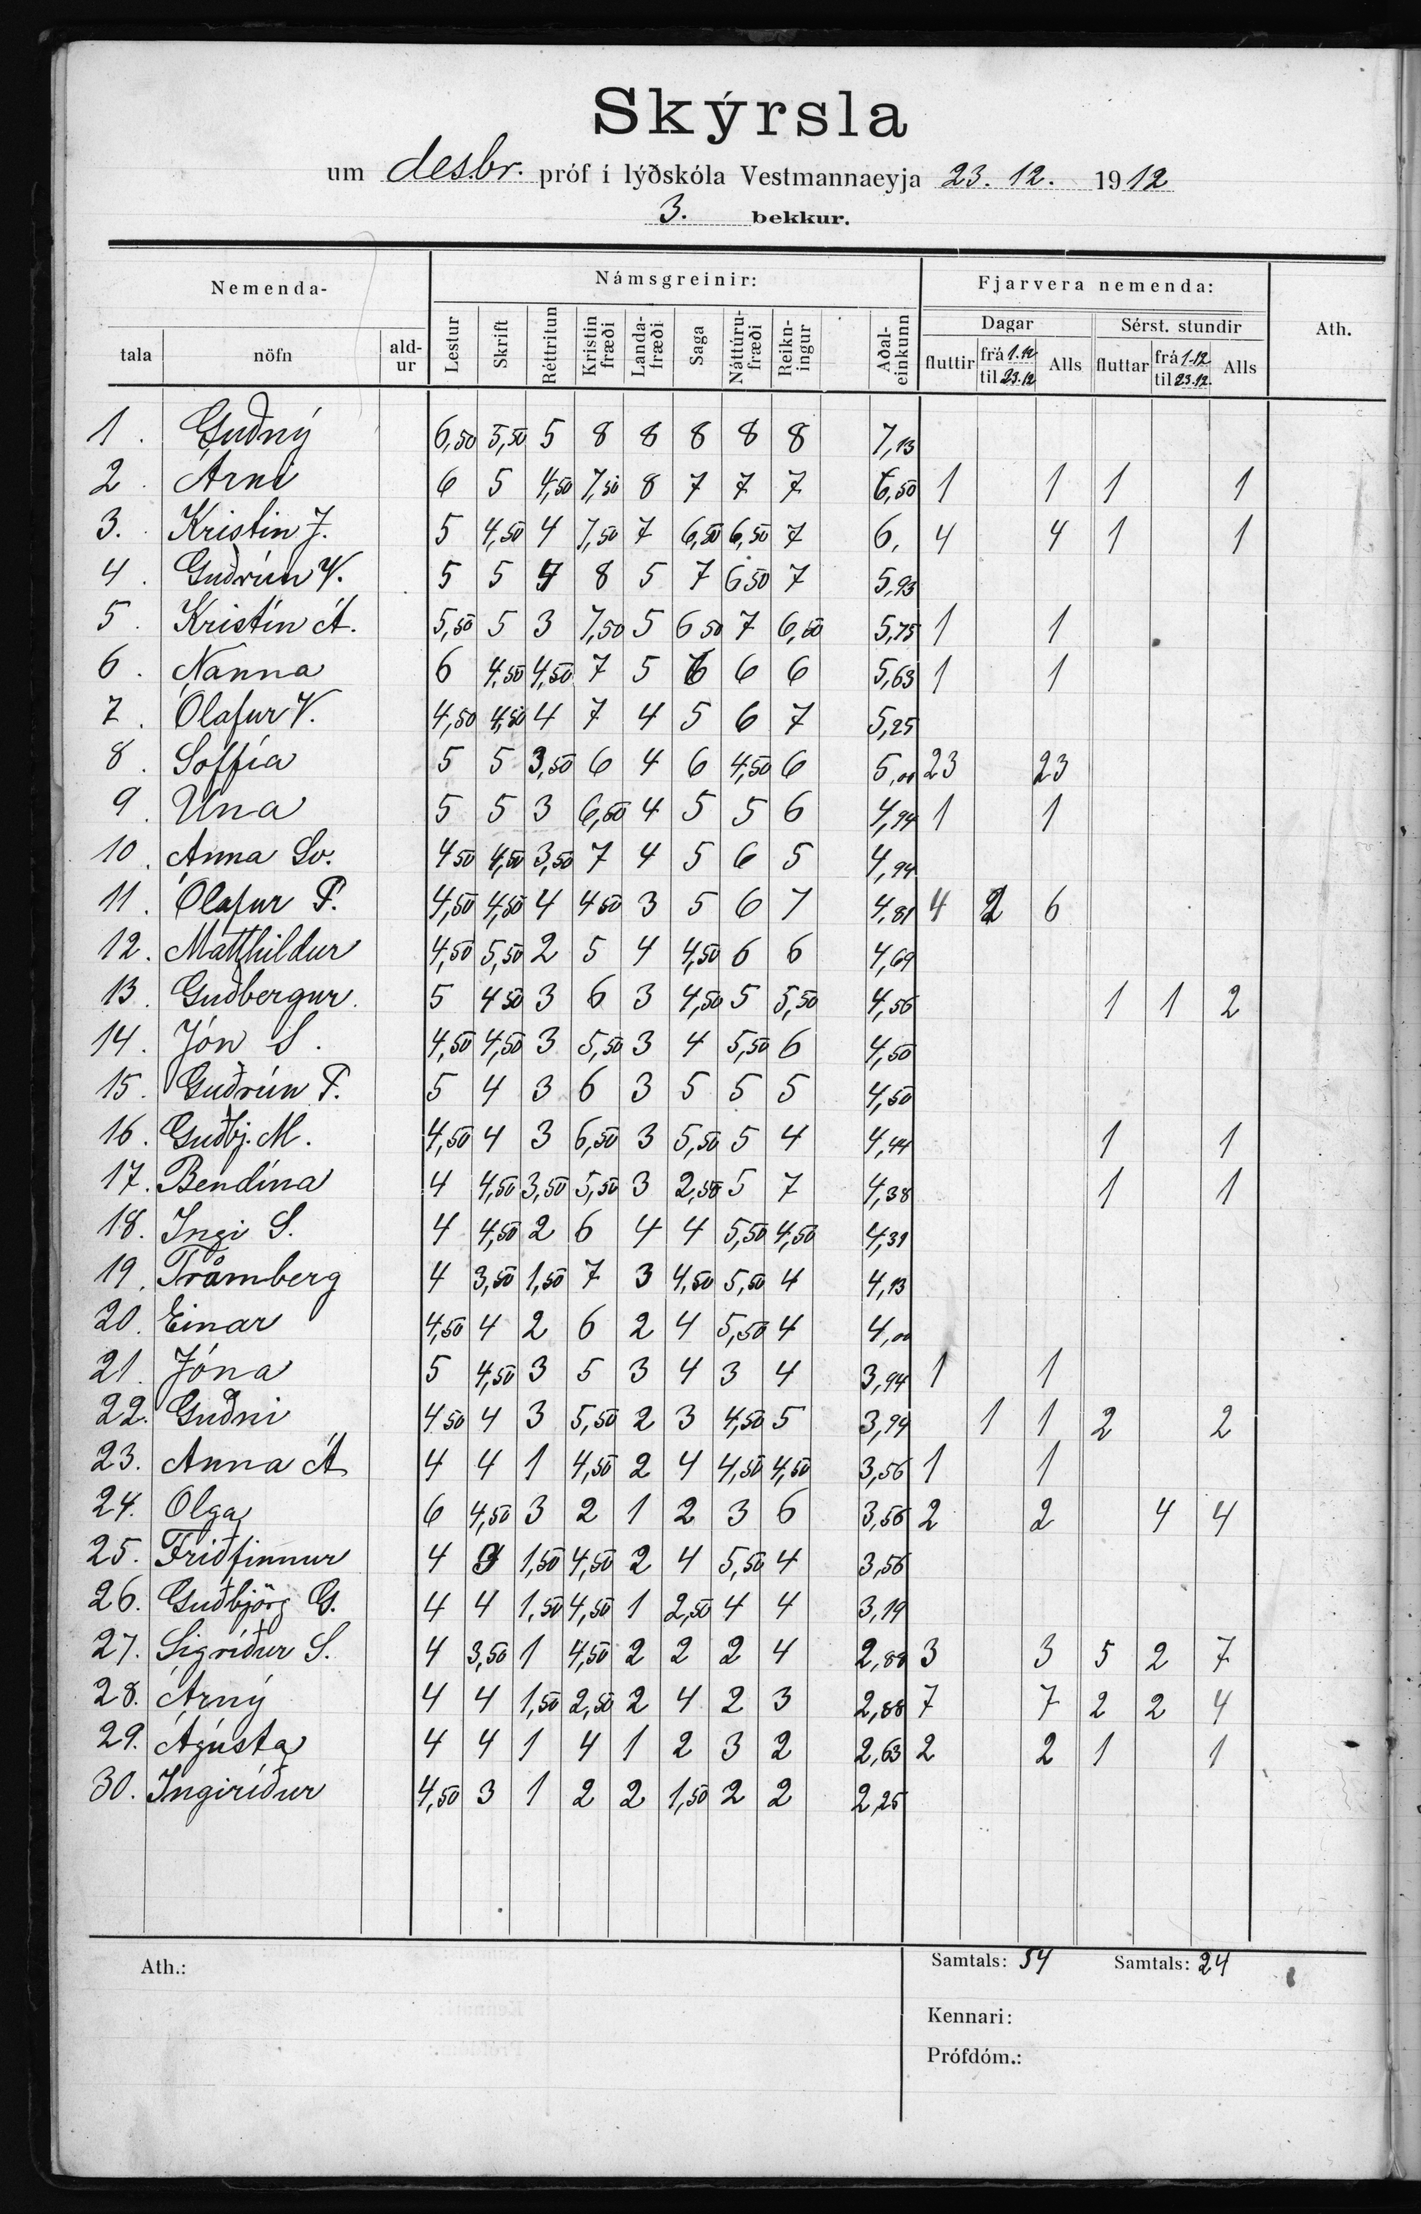 Skýrsla
um desbr. próf í lýðskóla Vestmannaeyja 23. 12. 1912
3. bekkur.
Nemenda- Námsgreinir: Fjarvera nemenda: Ath.
tala nöfn ald-ur Lestur Skrift Réttritun Kristin fræði Landa-fræði Saga Náttúru-fræði Reikn-ingur Aðal-einkunn Dagar Sérst. stundir
fluttir frá 1.12 til 23.12 Alls fluttar frá 1-12 til 23.12. Alls
1. Guðný 6,50 5,50 5 8 8 8 8 8 7,13
2. Árni 6 5 4,50 7,50 8 7 7 7 6,50 1 1 1 1
3. Kristin J. 5 4,50 4 7,50 7 6,50 6,50 7 6, 4 4 1 1
4. Guðrún V. 5 5 4 8 5 7 6 50 7 5,93
5. Kristín Á. 5,50 5 3 7,50 5 6 50 7 6,50 5,75 1 1
6. Nanna 6 4,50 4,50 7 5 6 6 6 5,63 1 1
7. Ólafur V. 4,50 4,50 4 7 4 5 6 7 5,25
8. Soffía 5 5 3,50 6 4 6 4,50 6 5,00 23 23
9. Una 5 5 3 6,50 4 5 5 6 4,94 1 1
10. Anna Sv. 4 50 4,50 3,50 7 4 5 6 5 4,94
11. Ólafur P. 4,50 4,50 4 4 50 3 5 6 7 4,81 4 2 6
12. Matthildur 4,50 5,50 2 5 4 4,50 6 6 4,69
13. Guðbergur. 5 4 50 3 6 3 4,50 5 5,50 4,56 1 1 2
14. Jón S. 4,50 4,50 3 5,50 3 4 5,50 6 4,50
15. Guðrún P. 5 4 3 6 3 5 5 5 4,50
16. Guðbj. M. 4,50 4 3 6,50 3 5,50 5 4 4,44 1 1
17. Bendína 4 4,50 3,50 5,50 3 2,50 5 7 4,38 1 1
18. Ingi S. 4 4,50 2 6 4 4 5,50 4,50 4,31
19. Tråmberg 4 3,50 1,50 7 3 4,50 5,50 4 4,13
20. Einar 4,50 4 2 6 2 4 5,50 4 4,00
21. Jóna 5 4,50 3 5 3 4 3 4 3,94 1 1
22. Guðni 4 50 4 3 5,50 2 3 4,50 5 3,94 1 1 2 2
23. Anna Á 4 4 1 4,50 2 4 4,50 4,50 3,56 1 1
24. Olga 6 4,50 3 2 1 2 3 6 3,56 2 2 4 4
25. Friðfinnur 4 3 1,50 4,50 2 4 5,50 4 3,56
26. Guðbjörg G. 4 4 1,50 4,50 1 2,50 4 4 3,19
27. Sigríður S. 4 3,50 1 4,50 2 2 2 4 2,88 3 3 5 2 7
28. Árný 4 4 1,50 2,50 2 4 2 3 2,88 7 7 2 2 4
29. Ágústa 4 4 1 4 1 2 3 2 2,63 2 2 1 1
30. Ingiríður 4,50 3 1 2 2 1,50 2 2 2,25
Ath.: Samtals: 54 Samtals: 24
Kennari:
Prófdóm.: